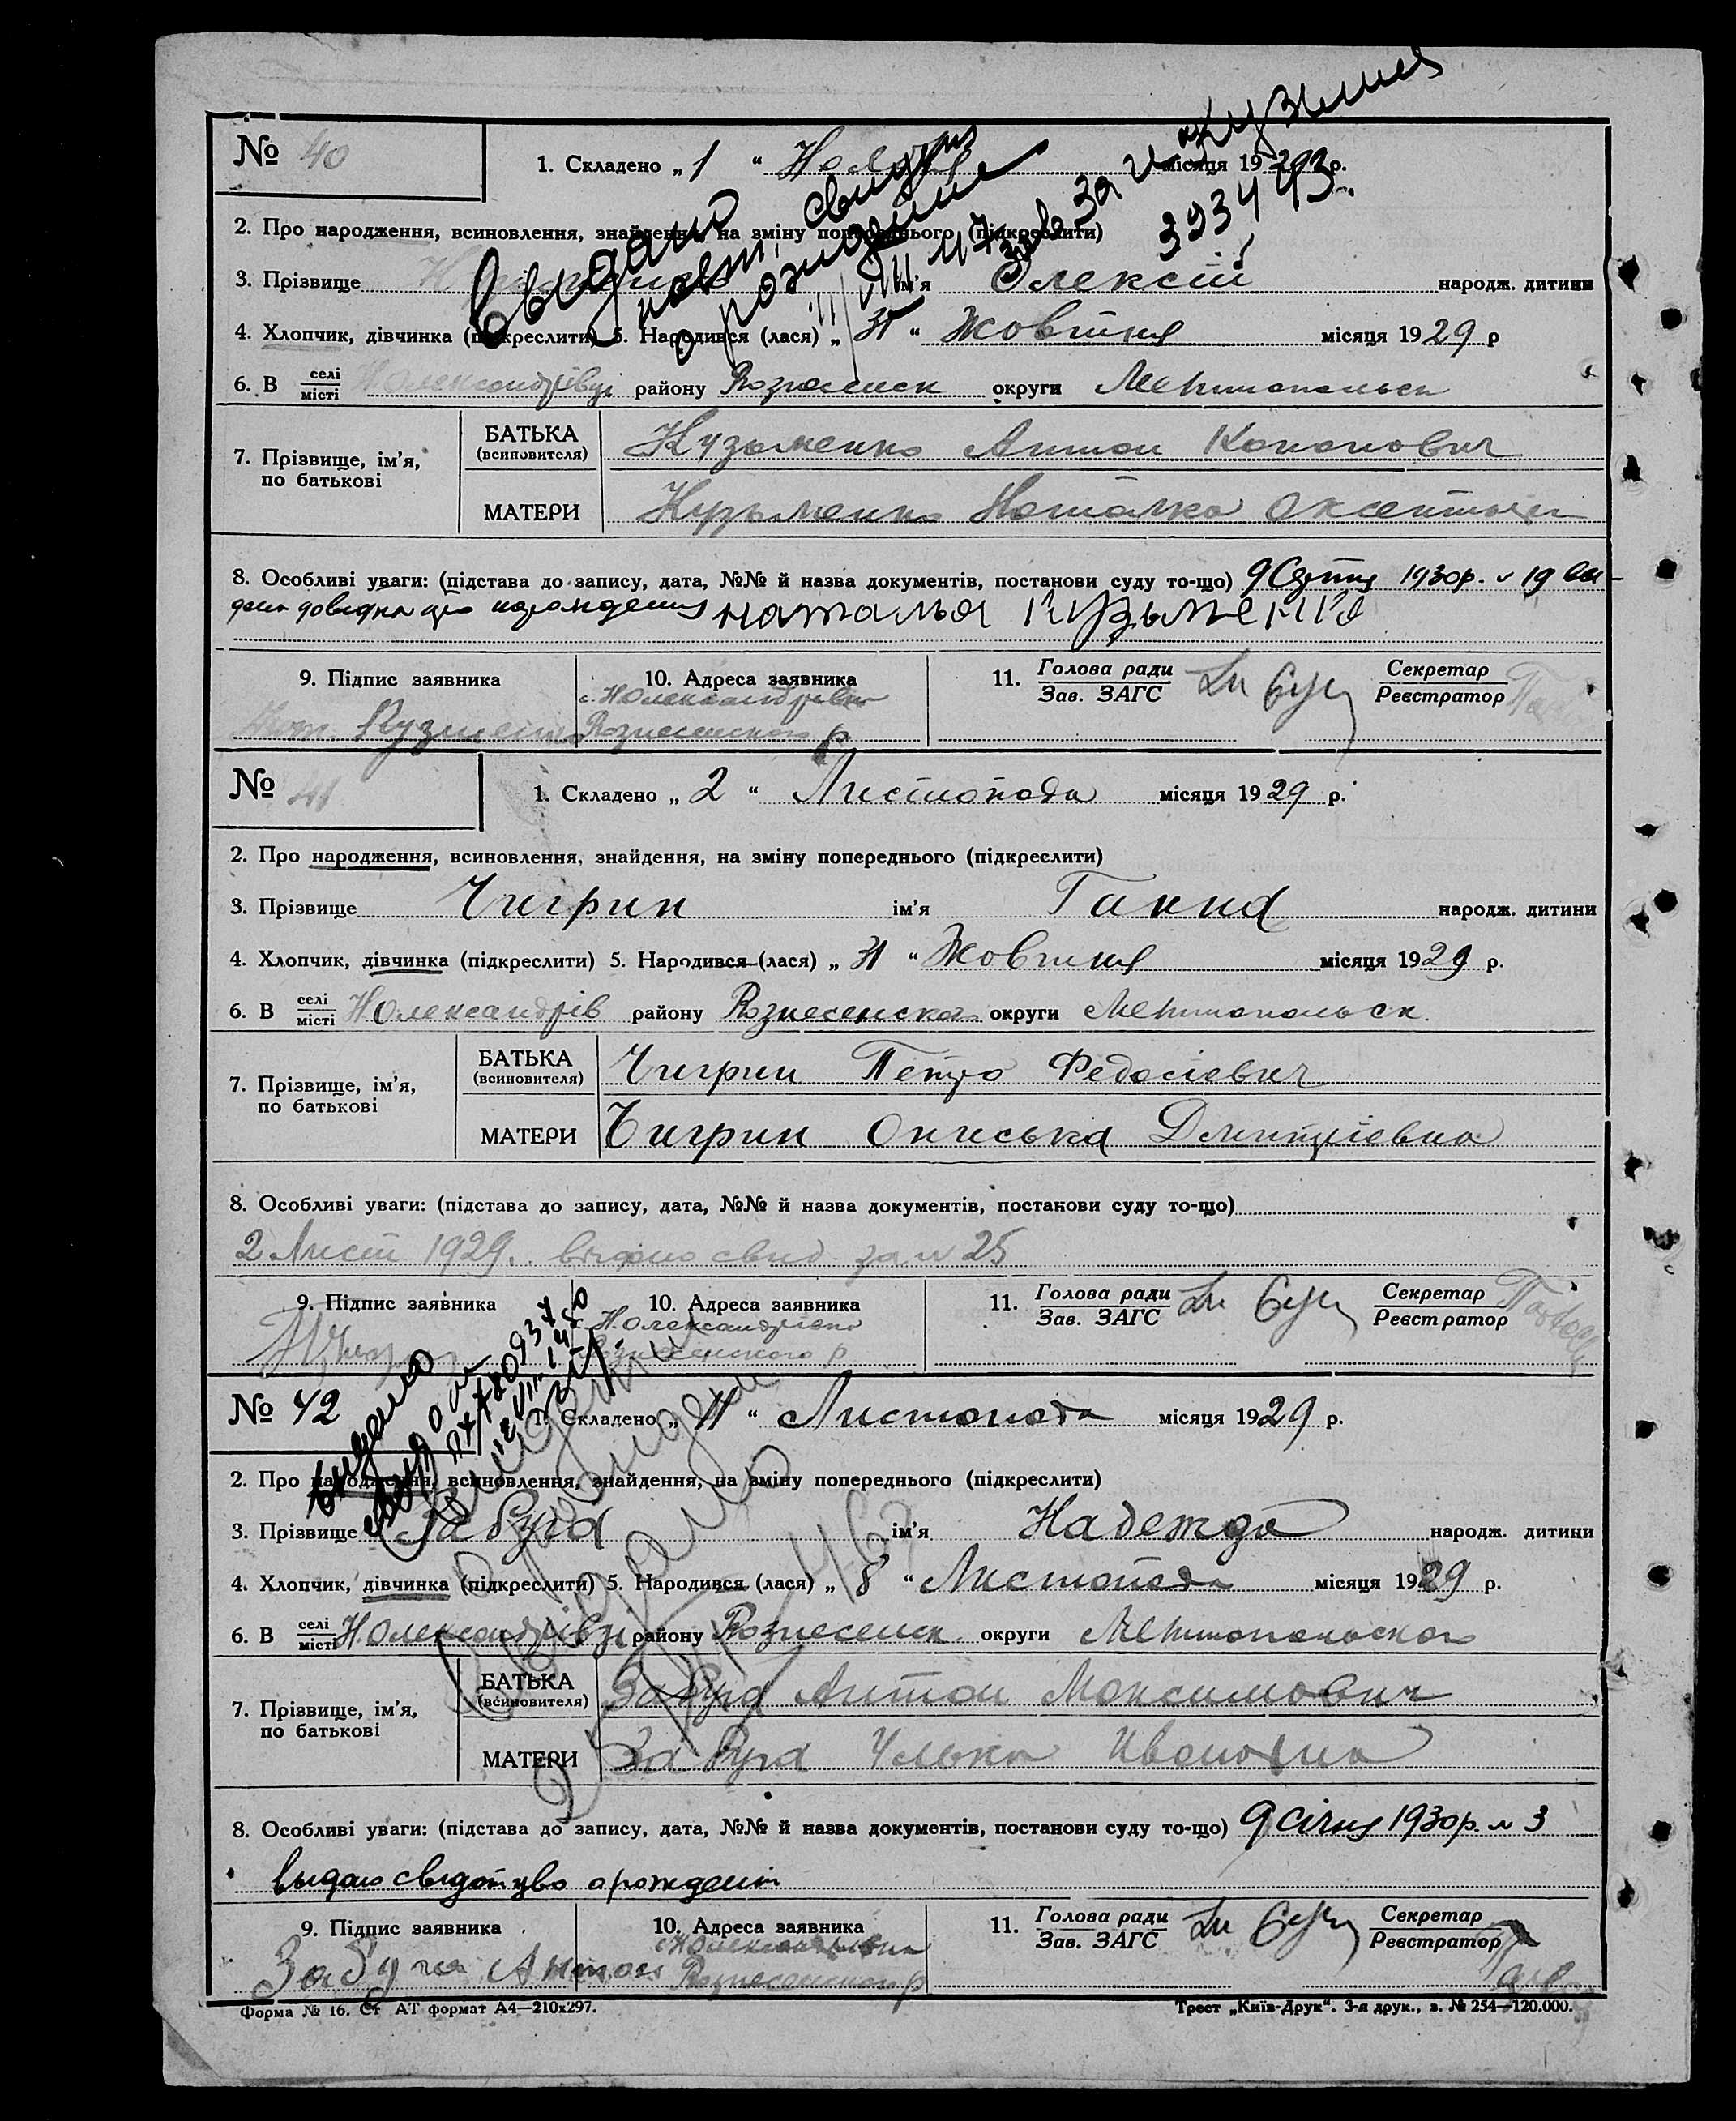 № 40
1. Складено „ 1 “ Ноября місяця 1929 р.
2. Про народження, всиновлення, знайдення, на зміну попереднього (підкреслити)
Выдано повт. свид. о рождение за
393443
3. Прізвище ім'я Олексій народж. дитини
4. Хлопчик, дівчинка (підкреслити) 5. Народився (лася) „ 31 “ Жовтня місяця 1929 р
6. В селі місті Н Олександрівці району Вознесенск округи Мелитопольск
7. Прізвище, ім'я, по батькові
БАТЬКА (всиновителя) Кузьменко Антон Кононович
МАТЕРИ Кузьменко Наталка
8. Особливі уваги: (підстава до запису, дата, №№ й назва документів, постанови суду то-що) 9 Січня 1930р. № 19 ви-
дана довідка про народження наталья Кузьменко
9. Підпис заявника
10. Адреса заявника
11. Голова ради Зав. ЗАГС
Секретар Реєстратор
Нат. Кузменко
с. Н Олександрівка
Вознесенского р
№ 41
1. Складено „ 2 “ Листопада місяця 1929 р.
2. Про народження, всиновлення, знайдення, на зміну попереднього (підкреслити)
3. Прізвище Чигрин ім'я Ганна народж. дитини
4. Хлопчик, дівчинка (підкреслити) 5. Народився (лася) „ 31 “ Жовтня місяця 1929 р.
6. В селі місті Н Олександрів району Вознесенска округи Мелитопольск.
7. Прізвище, ім'я, по батькові
БАТЬКА (всиновителя) Чигрин Петро Федосієвич
МАТЕРИ Чигрин Ониська Дмитрієвна
8. Особливі уваги: (підстава до запису, дата, №№ й назва документів, постанови суду то-що)
2 Лист 1929. видано свид за № 25
9. Підпис заявника
10. Адреса заявника
11. Голова ради Зав. ЗАГС
Секретар Реєстратор
с. Н. Олександрівка
Вознесенского р
№ 42
1. Складено „ 11 “ Листопада місяця 1929 р.
2. Про народження, всиновлення, знайдення, на зміну попереднього (підкреслити)
3. Прізвище Забуга ім'я Надежда народж. дитини
4. Хлопчик, дівчинка (підкреслити) 5. Народився (лася) „ 8 “ Листопада місяця 1929 р.
6. В селі місті Н. Олександрівці району Вознесенск округи Мелитопольского
7. Прізвище, ім'я, по батькові
БАТЬКА (всиновителя) Забуга Антон Максимович
МАТЕРИ Забуга Улька Ивановна
8. Особливі уваги: (підстава до запису, дата, №№ й назва документів, постанови суду то-що) 9 січня 1930р. № 3
выдано свідотцво
9. Підпис заявника
10. Адреса заявника
11. Голова ради Зав. ЗАГС
Секретар Реєстратор
Забуга Антон
с Н Олександрівка
Вознесенского р
Форма № 16. Ст АТ формат А4—210х297.
Трест „Київ-Друк“. 3-я друк., з. № 254—120.000.